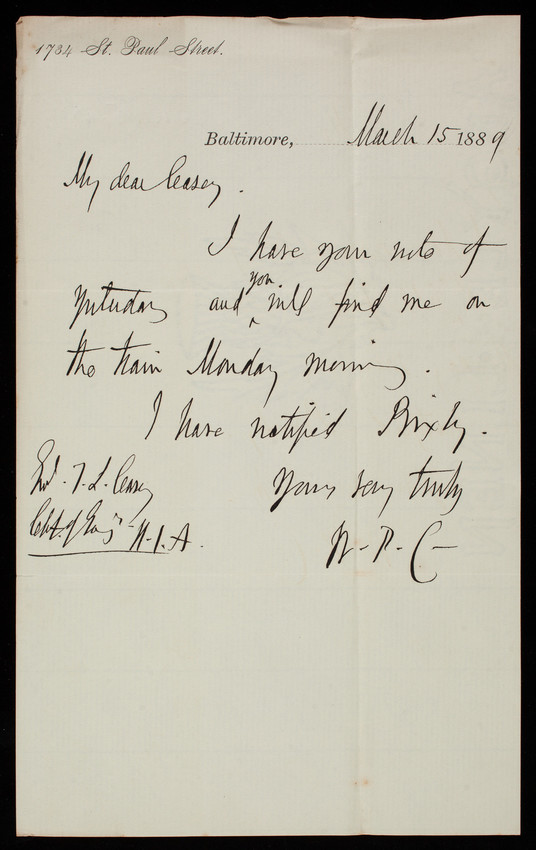 1734 St. Paul Street.
Baltimore, March 15 1889
My dear Casey.
I have your note of
yesterday and you will find me on
the train Monday morning.
I have notified Bixby.
Yours very truly
W. P. C
T. L. Casey
Chf. of Eng'rs U.S.A.